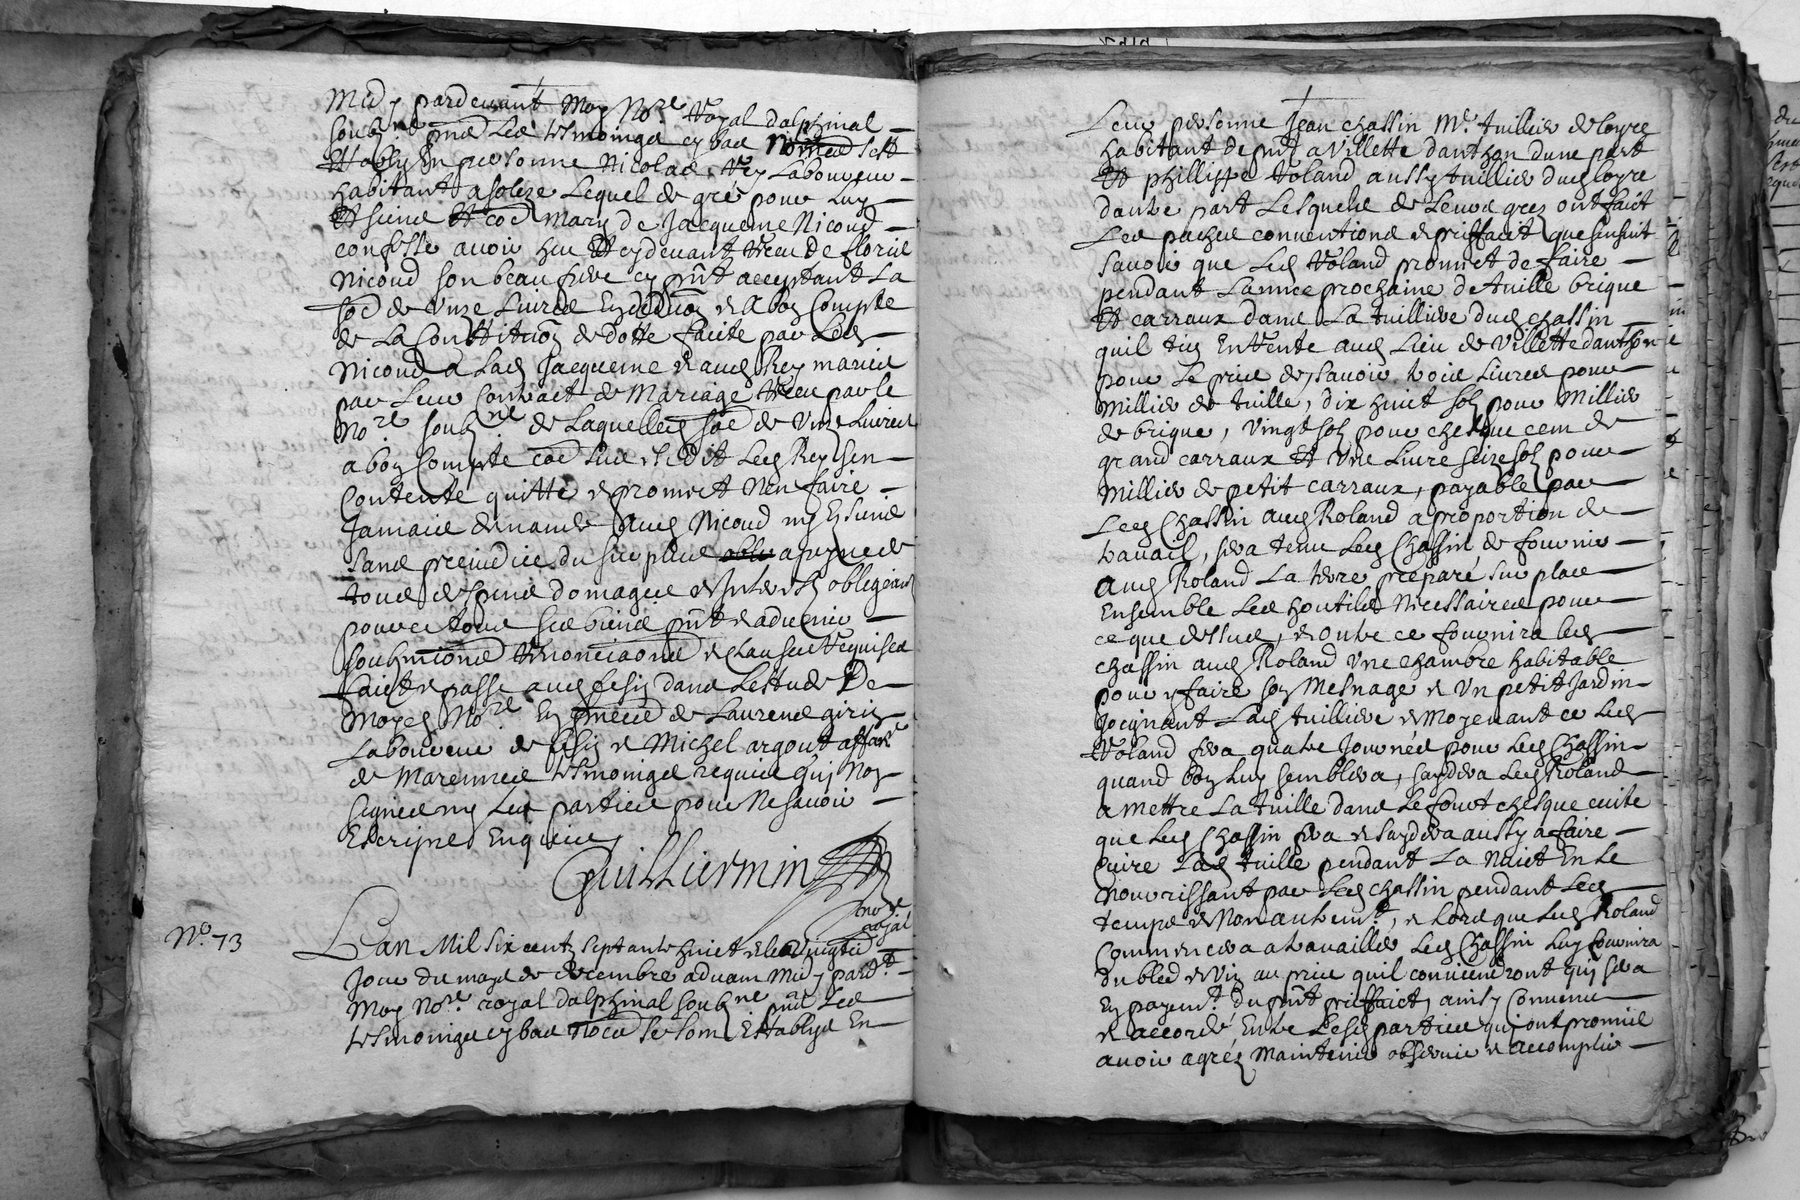 Midy pardevant Moy No.re Royal dalphinal
soub.né p̄nt Les tesmoings cy bas nommes sest
Estably En personne Nicolas Rey Laboureur
habitant a soleze Lequel de gré pour Luy
Et siens Et coē mary de Jacqueme Nicoud
confesse avoir heu Et cydevant receu de florie
Nicoud son beau frere cy p̄nt acceptant La
soē de Unze Livres En dedūon & a bon Compte
de La Constitūon de Dotte faicte par Led
Nicoud a Lad Jacqueme & aud Rey maries
par Leur Contract de Mariage receu par le
No.re soub.né de Laquelle soē de Unze Livres
a bon Compte coē sus est dit Led Rey sen
Contente quitte & promet Nen faire
Jamais demande aud Nicoud ny Es siens
sans preiudice du surplus a peyne de
tous despens domages & interetz obligeant
pour ce tous ses biens p̄nt & advenir
soubmīons renonciaōns & clauses requises
faict & passe aud fesin dans Lestude De
Moyd No.re En p̄nēce de Laurens girin
Laboureur de fesin & Michel argout affan.r
de Marennes tesmoings requis quj Non
signes ny Les parties pour Ne savoir
Escripre Enquis
Guilliermin
no.re
royal
N.o 73
Lan Mil six cent septante huict & le vingtie
Jour du moys de decembre advant Midy pard.t
Moy No.re royal dalphinal soub.né p̄nt Les
tesmoings cy bas no͞es se sont Establys En
Leur personne Jean chassin M.e tuillier de loyre
habitant de p̄nt a Villette danthon dune part
Et phillippe Roland aussy tuillier dud loyre
dautre part Lesquels de Leurs grez ont faict
Les paches conventions & prisfaict que sensuit
savoir que Led Roland promet de faire
pendant Lannee prochaine de tuille brique
Et carraux dans La tuilliere dud chassin
quil tien En Rente aud Lieu de Villette danthon
pour Le pris de, savoir trois Livres pour
Millier de tuille, dix huict solz pour Millier
de brique, vingt solz pour chesque cent de
grand carraux Et Une Livre seize solz pour
Millier de petit carraux, payable par
Led Chassin aud Roland a proportion de
travail, sera tenu Led Chassin de fournir
aud Roland La terre preparé sur place
Ensemble Les houtils Necessaires pour
ce que dessus, & outre ce fournira led
chassin aud Roland Une chambre habitable
pour y faire son Mesnage & Un petit Jardin
Joignant Lad tuilliere & moyenant ce Led
Roland fera quatre Journées pour Led Chassin
quand bon Luy semblera, saydera Led Roland
a Mettre La tuille dans Le fourt chesque cuite
que Led Chassin fera & saydera aussy a faire
cuire Lad tuille pendant La Nuict En Le
nourrissant par Led chassin pendant Led
temps & Non autrem.t, & Lors que Led Roland
Commencera a travailler Led Chassin Luy fournira
du bled & vin au pris quil conviendront quj sera
En payem.t du p̄nt prisfaict, ainsy Convenu
& accordé Entre Lesd parties quj ont promis
avoir agréz Maintenir observer & accomplir